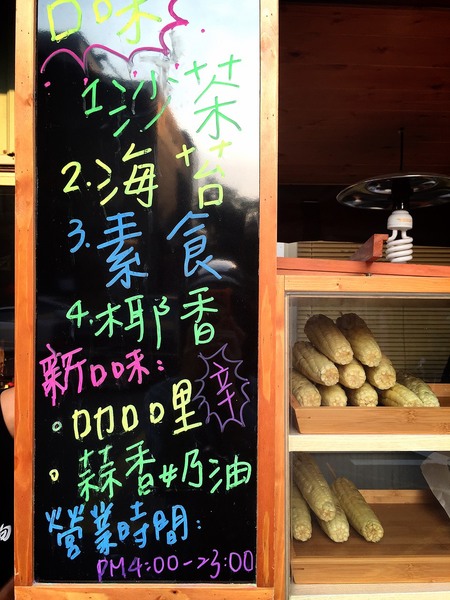 口味
1.沙茶
2.海苔
3.素食
4.椰香
新口味:
。咖哩 辛
。蒜香奶油
營業時間:
PM4:00->3:00